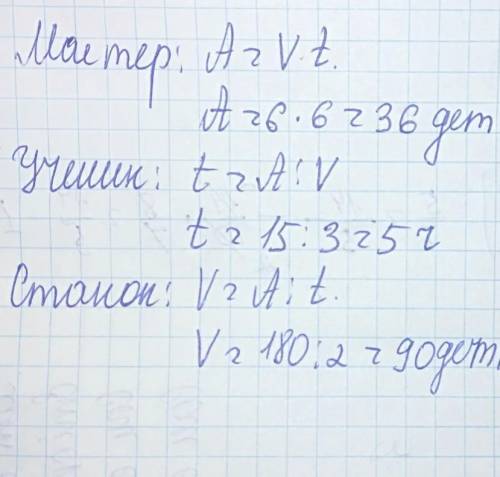 Мастер: A = V·t.
A = 6·6 = 36 дет
Ученик: t = A:V
t = 15:3 = 5 ч
Станок: V = A:t.
V = 180:2 = 90 дет.